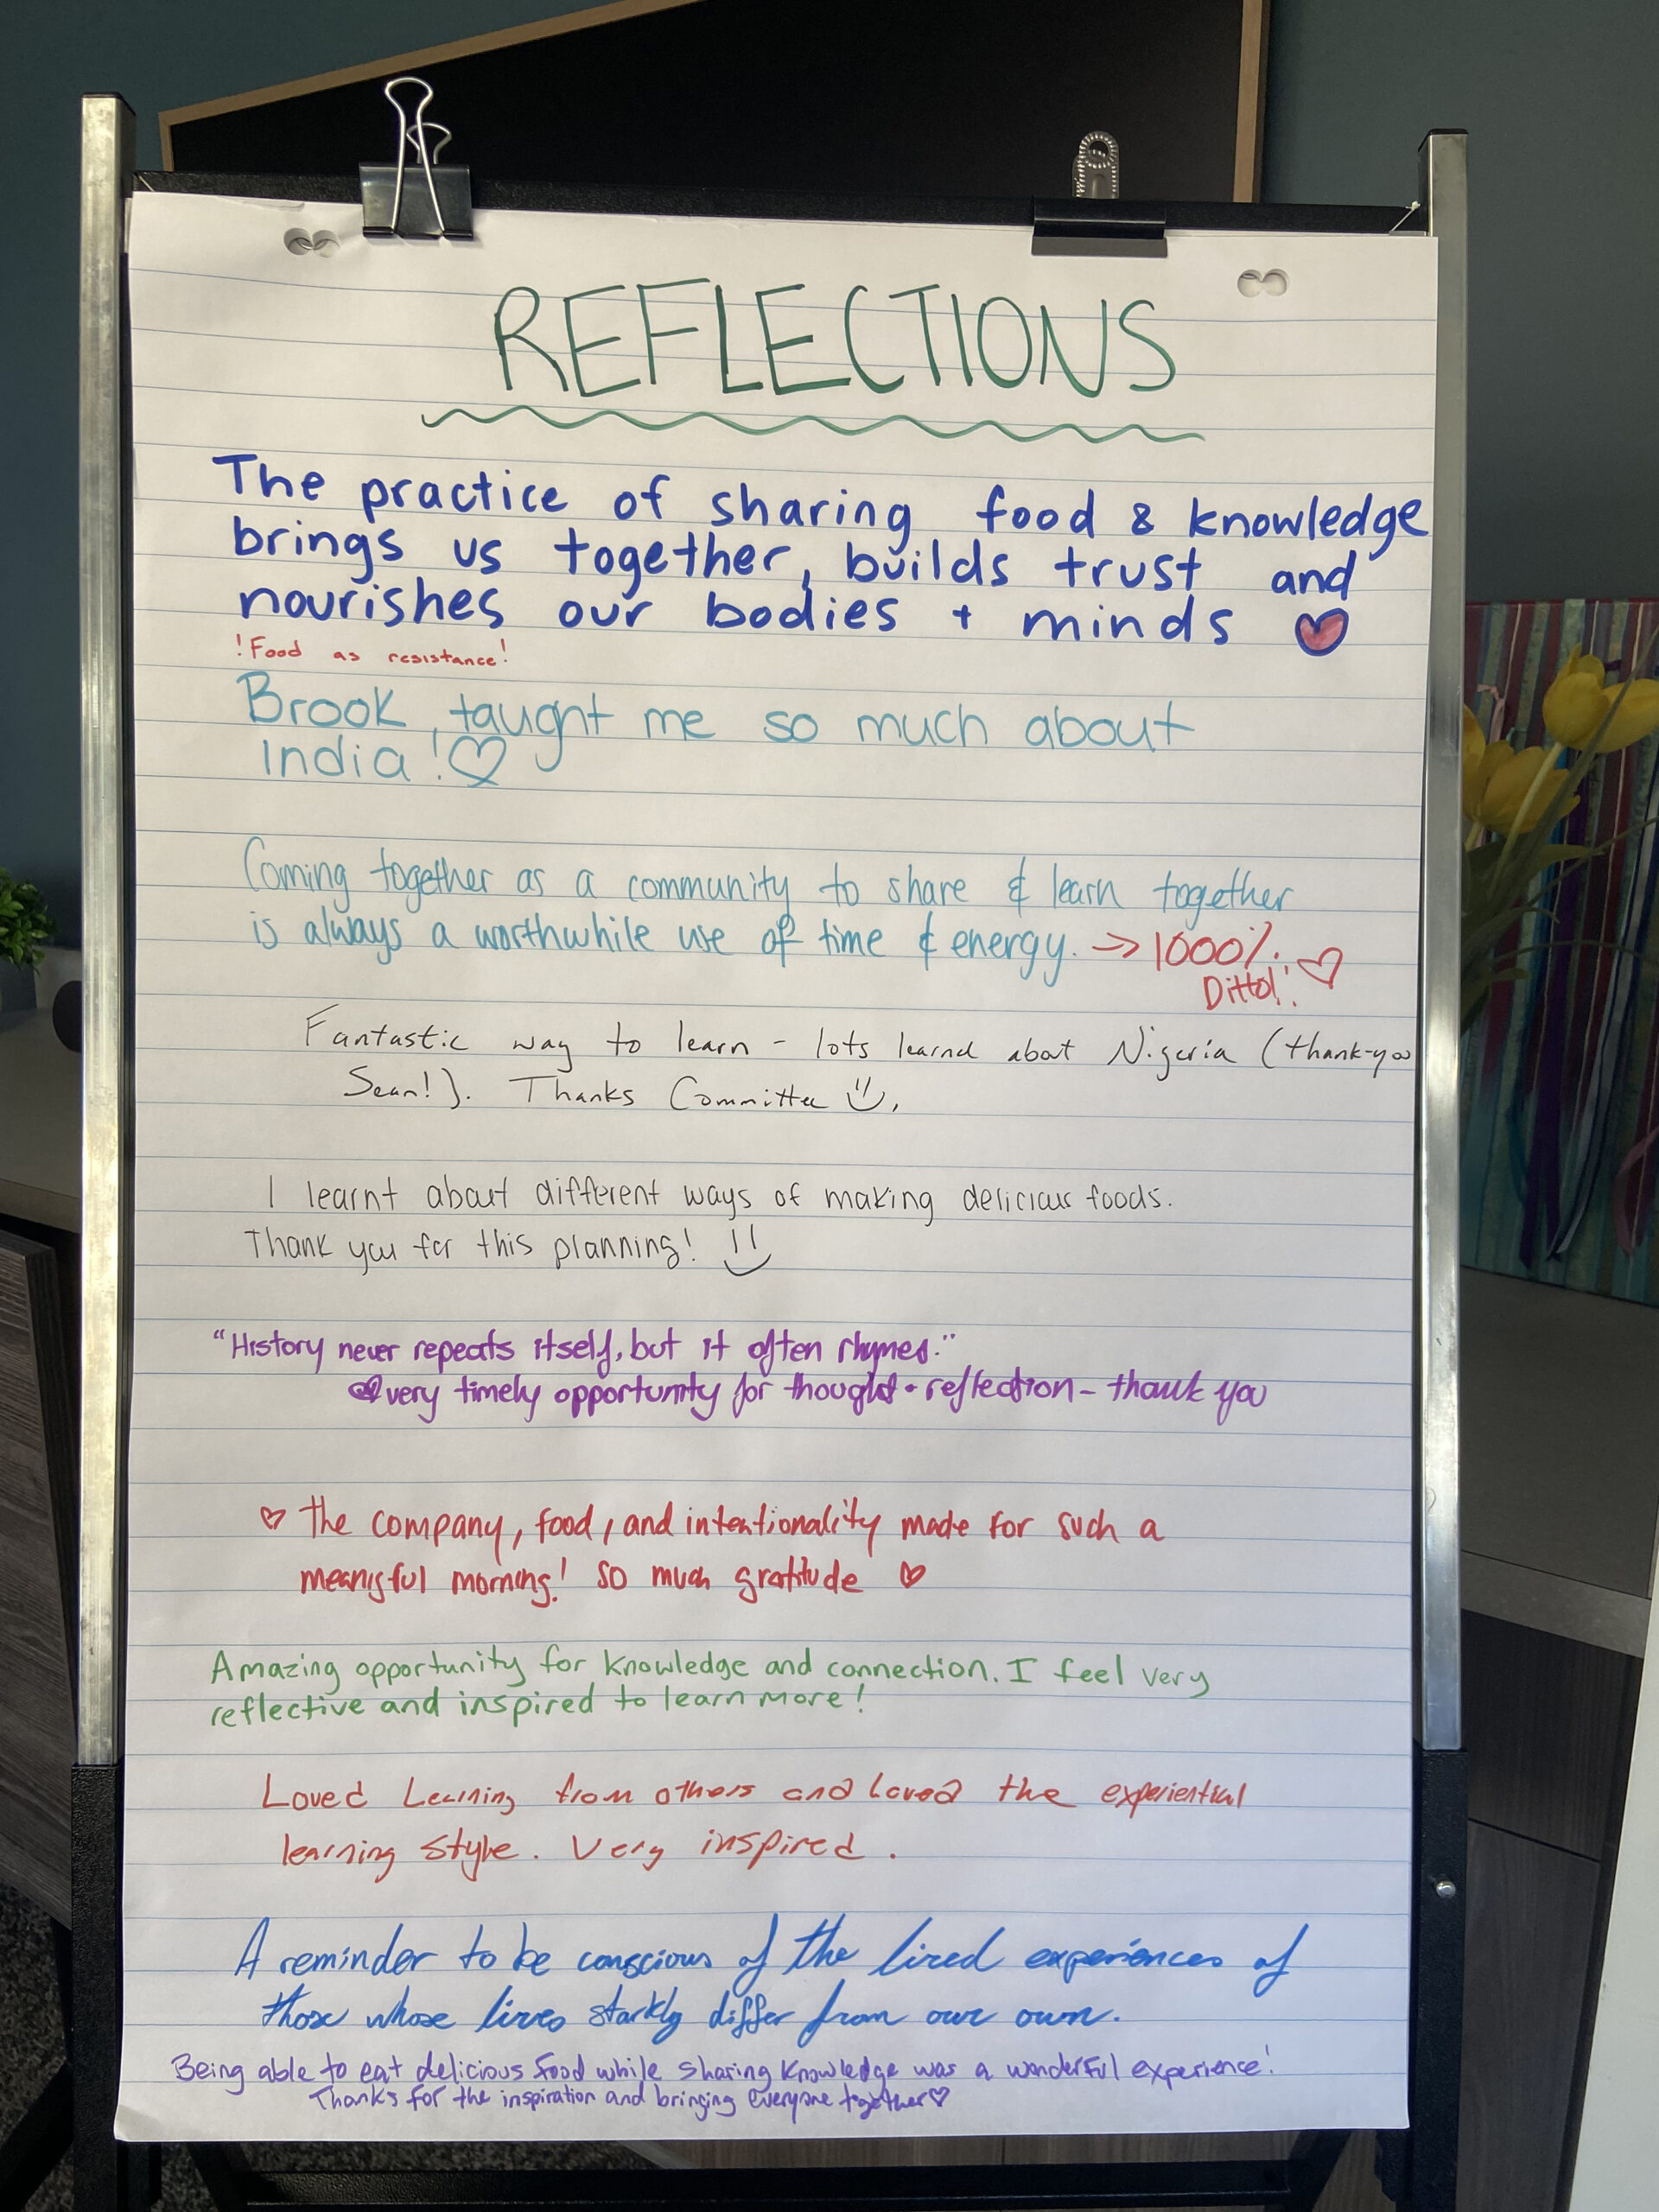 REFLECTIONS
The practice of sharing food & knowledge
brings us together, builds trust and
nourishes our bodies + minds ♡
!Food as resistance!
Brook, taught me so much about
India! ♡
Coming together as a community to share & learn together
is always a worthwhile use of time & energy. → 1000%.
Ditto!! ♡
Fantastic way to learn - lots learned about Nigeria (thank-you
Sean!). Thanks Committee :).
I learnt about different ways of making delicious foods.
Thank you for this planning! :)
"History never repeats itself, but it often rhymes."
♡ very timely opportunity for thought + reflection - thank you
♡ The company, food, and intentionality made for such a
meaningful morning! So much gratitude ♡
Amazing opportunity for knowledge and connection. I feel very
reflective and inspired to learn more!
Loved Learning from others and loved the experiential
learning style. Very inspired.
A reminder to be conscious of the lived experiences of
those whose lives starkly differ from our own.
Being able to eat delicious food while sharing knowledge was a wonderful experience!
Thanks for the inspiration and bringing everyone together ♡